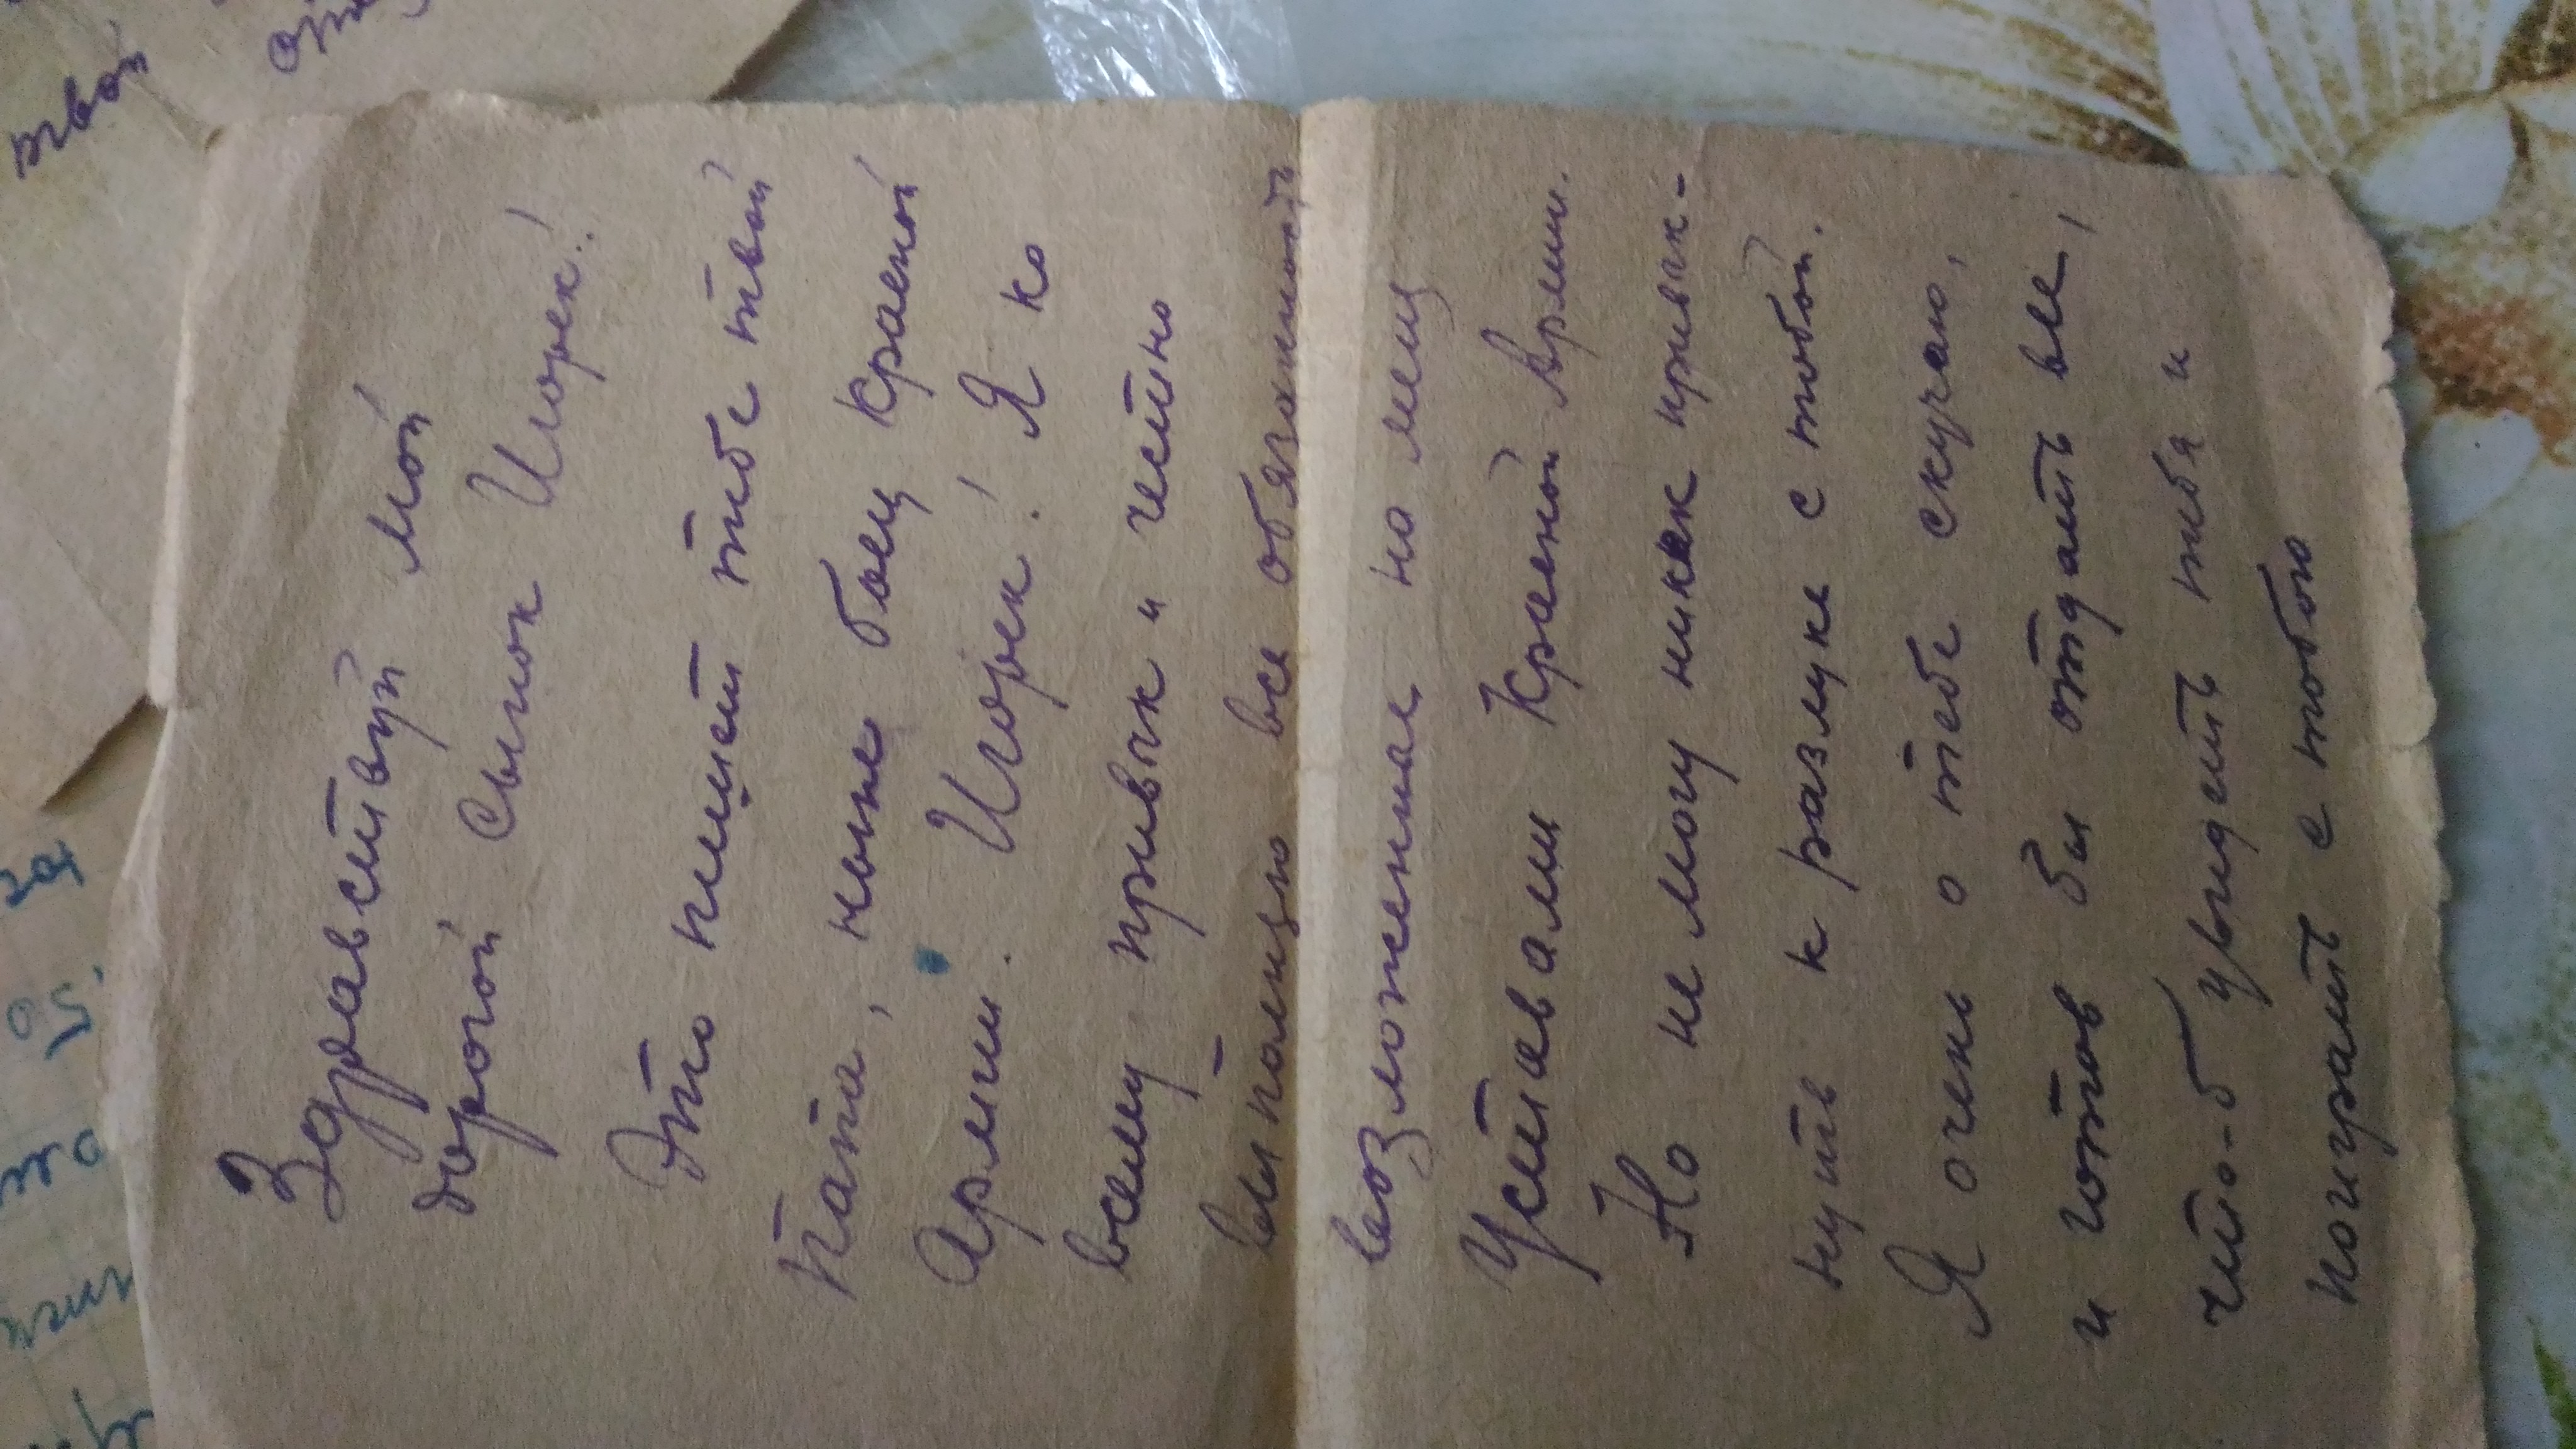 Здравствуй мой
дорогой сынок Игорек!
Это пишет тебе твой
папа, ныне боец Красной
Армии. Игорек! Я ко
всему привык и честно
выполняю все обязанности
возложенные на меня
Уставами Красной Армии.
Но не могу никак привык-
нуть к разлуке с тобой.
Я очень о тебе скучаю,
и готов бы отдать все,
что-б увидеть тебя и
поиграть с тобою
твой